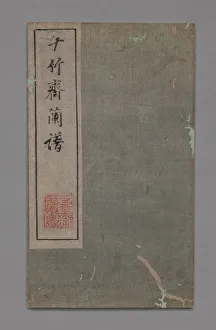 十竹齋蘭譜